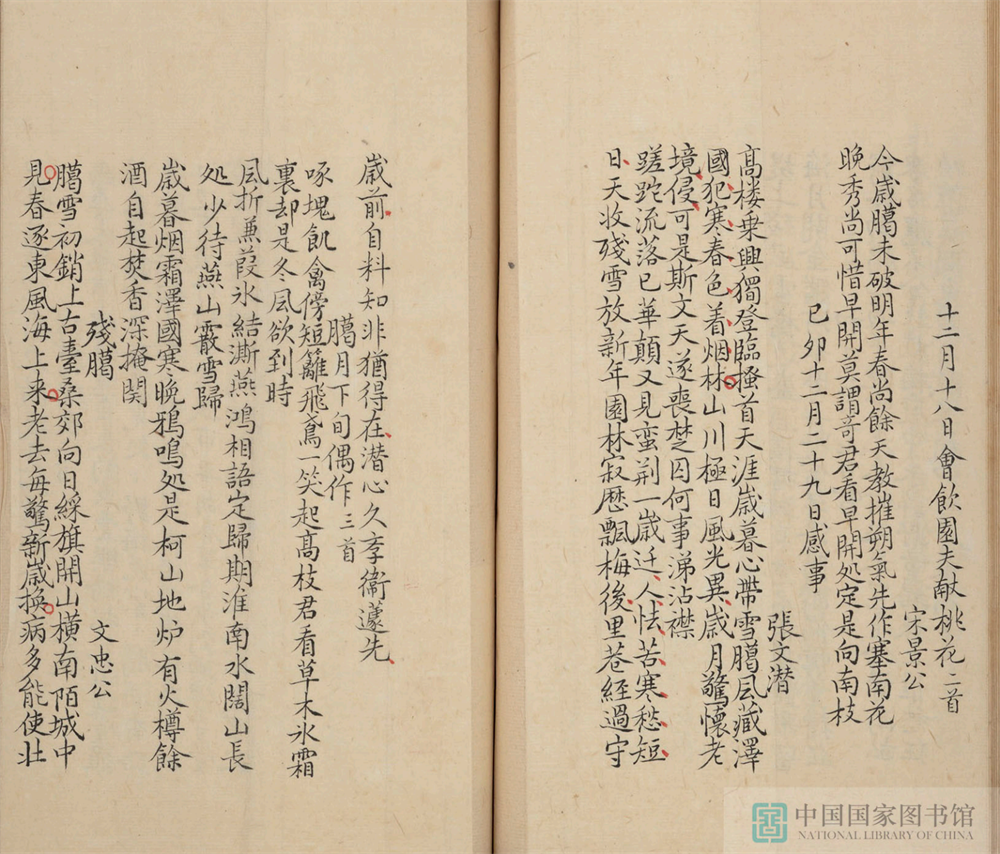 十二月十八日會飲園夫献桃花二首
宋景公
今歳臈未破明年春尚餘天教摧朔氣先作塞南花
晚秀尚可惜早開莫謂竒君看早開処定是向南枝
己卯十二月二十九日感事
張文潜
髙楼乗興獨登臨搔首天涯歳暮心帶雪臈風藏澤
國犯寒春色着烟林山川極日風光異歳月驚懷老
境侵可是斯文天遂喪楚囚何事涕沾襟
蹉跎流落已華顛又見蛮荆一歳迁人怯苦寒愁短
日天收殘雪放新年園林寂歴飄梅後里巷經過守
歳前自料知非猶得在潜心久李衞蘧先
臈月下旬偶作三首
啄塊飢禽傍短籬飛鳶一笑起髙枝君看草木氷霜
裏却是冬風欲到時
風折蒹葭氷結澌燕鴻相語定歸期淮南水闊山長
処少待燕山霰雪歸
歳暮烟霜澤國寒晚鴉鳴処是柯山地炉有火樽餘
酒自起焚香深掩関
殘臈
文忠公
臈雪初銷上古臺桑郊向日綵旗開山横南陌城中
見春逐東風海上来老去毎驚新歳換病多能使壮
中国国家图书馆
NATIONAL LIBRARY OF CHINA